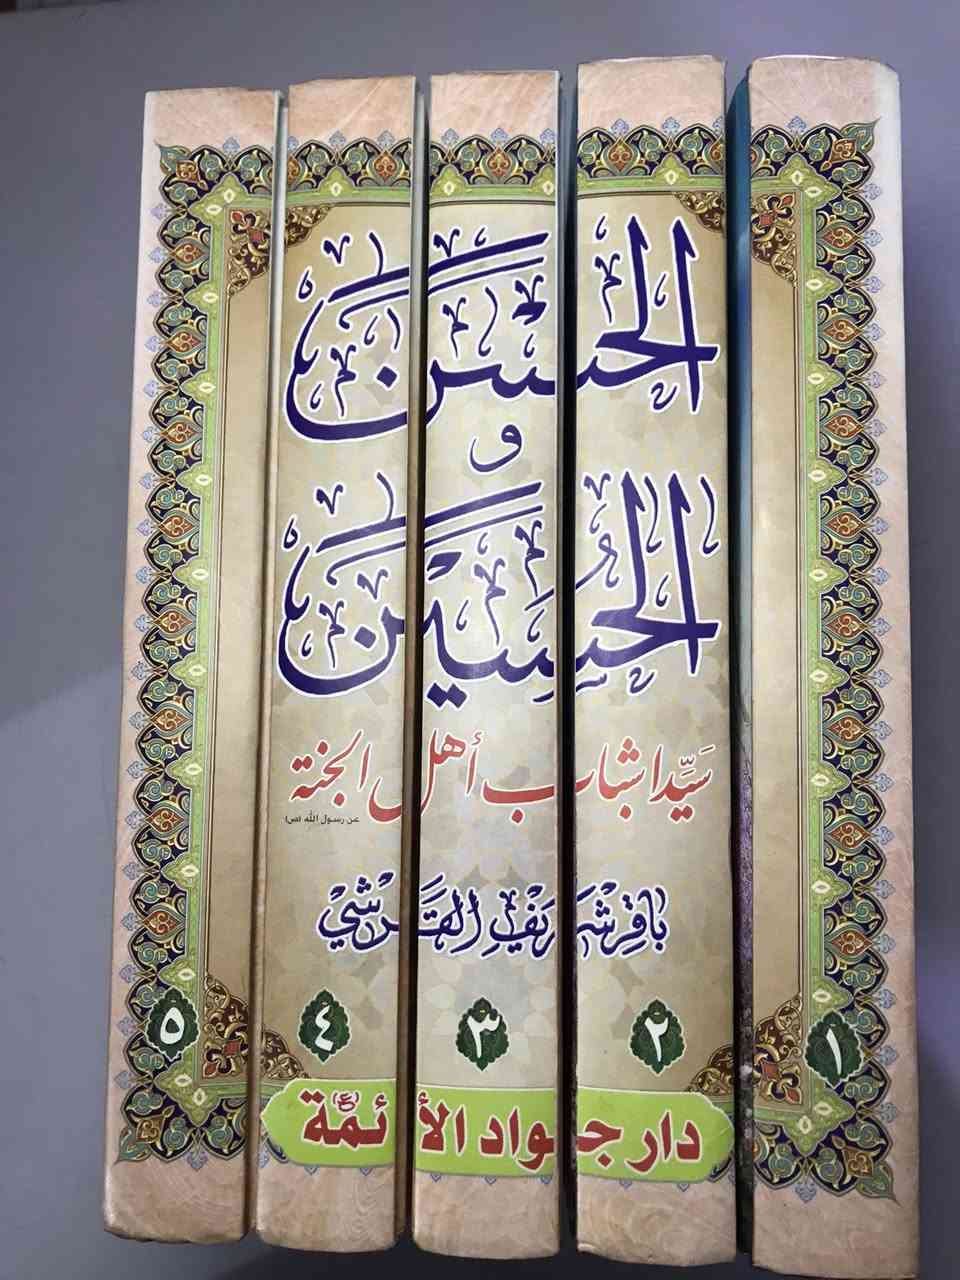 الحسن
و
الحُسَين
سَيِّدا شباب أهل الجنة
عن رسول الله (ص)
باقِر شريف القَرَشي
٥ ٤ ٣ ٢ ١
دار جواد الأئمّة (ع)